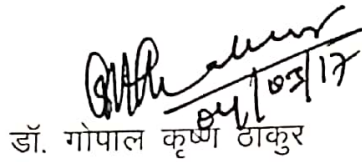 04/03/17
डॉ. गोपाल कृष्ण ठाकुर